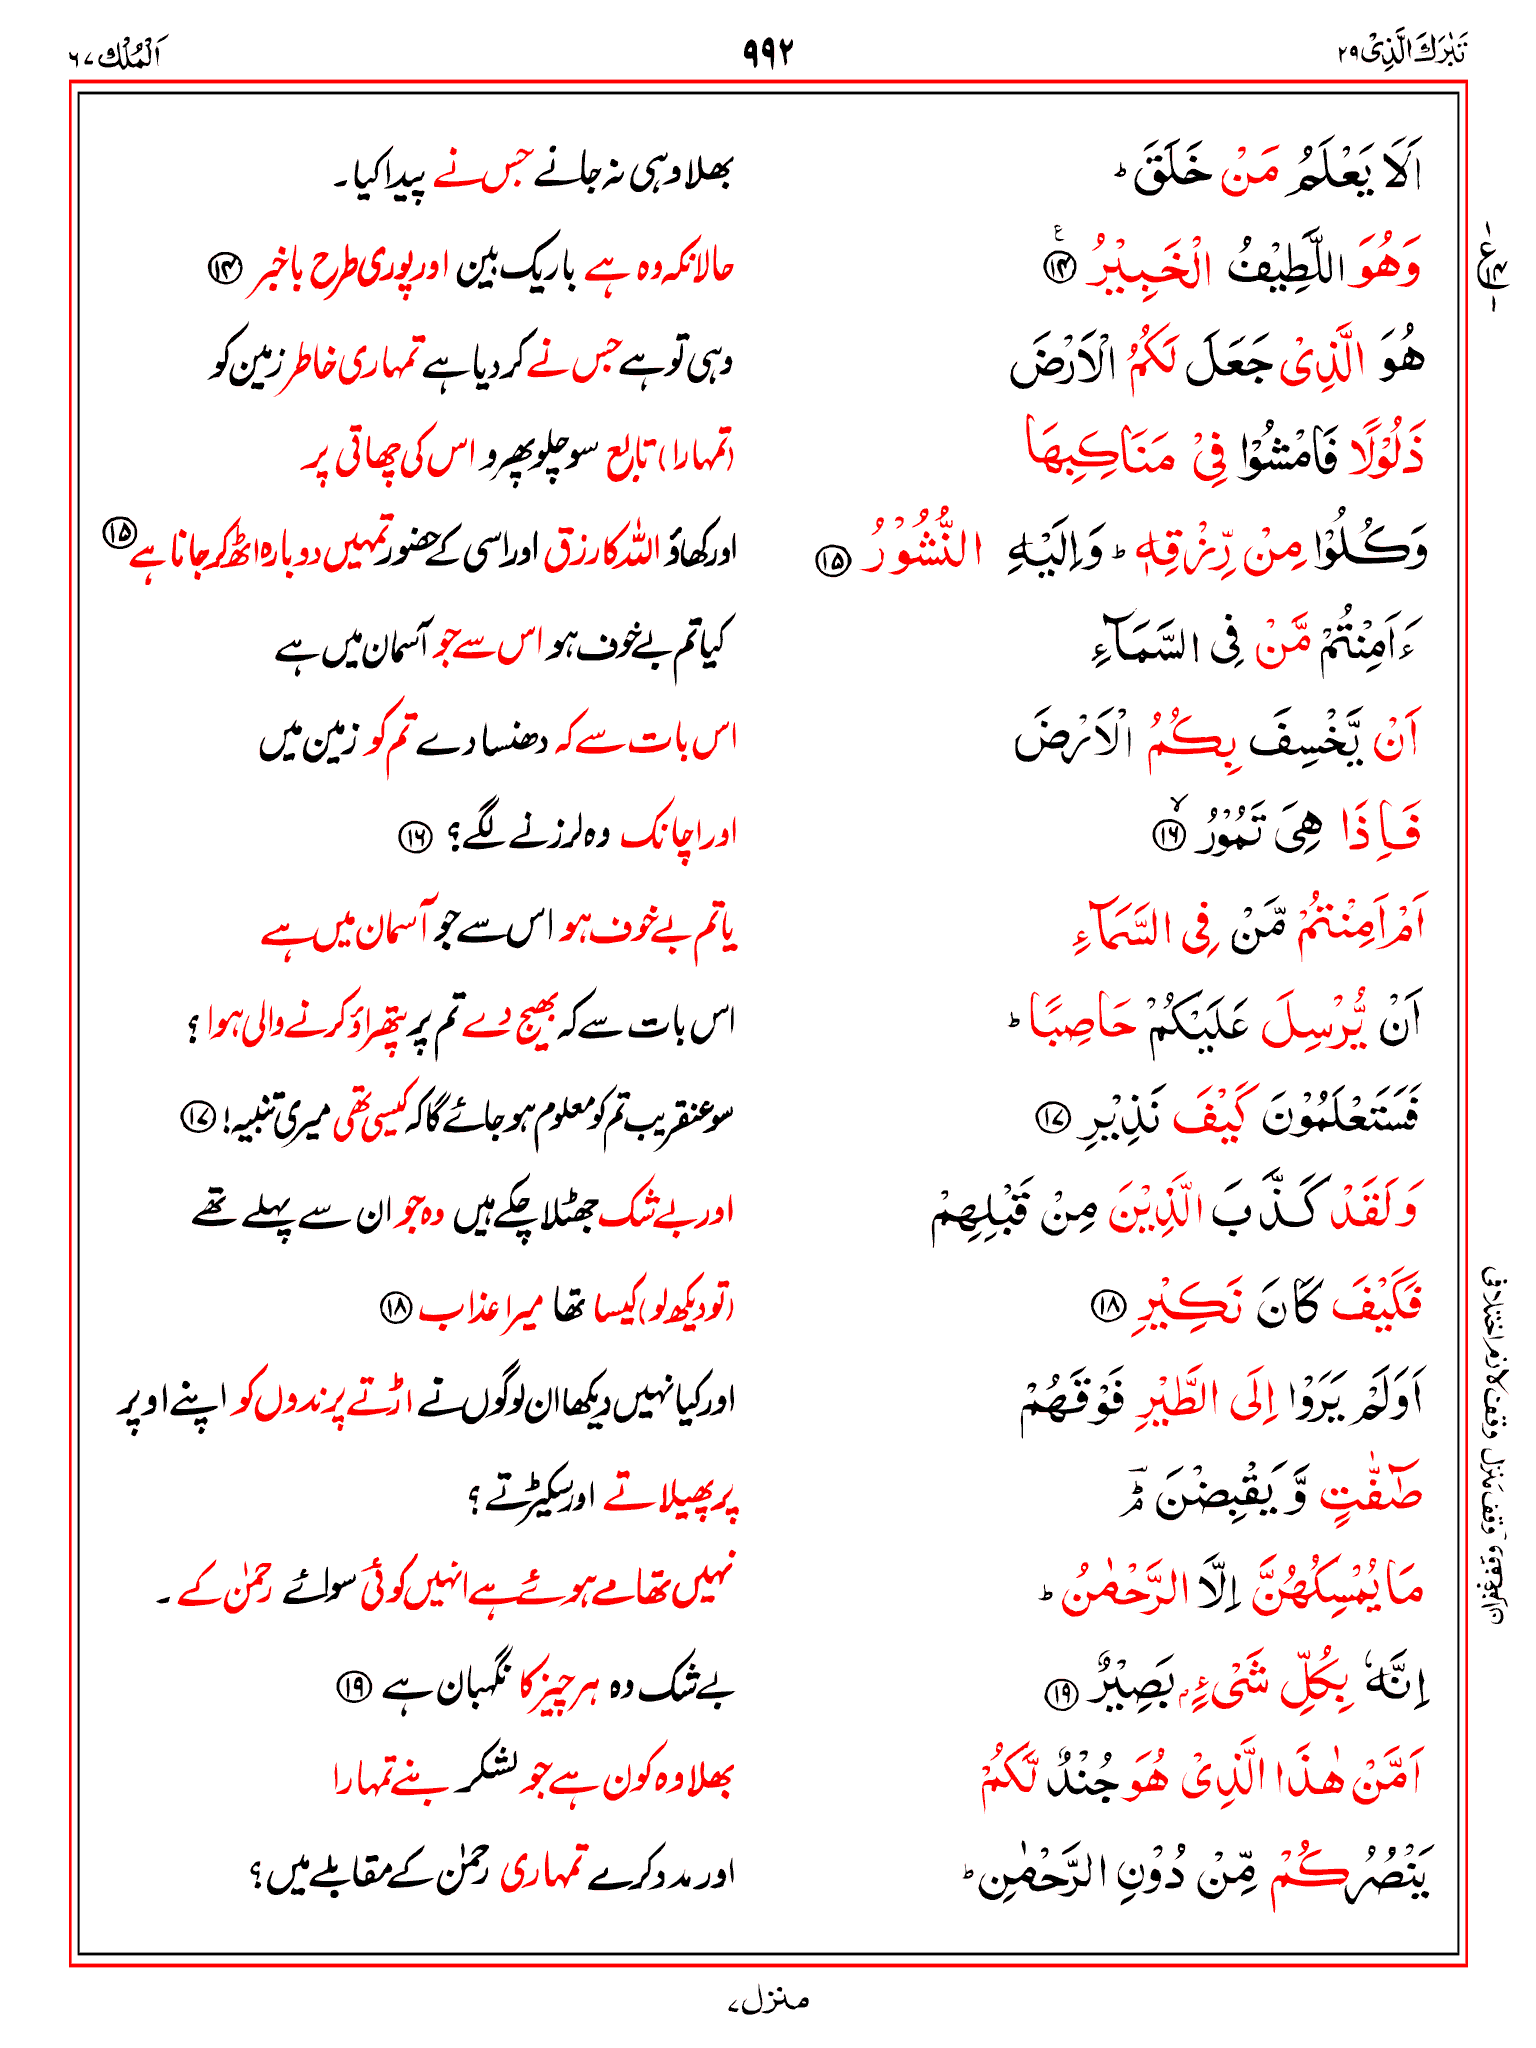 تَبٰرَكَ الَّذِیْ ۲۹
۹۹۲
اَلْمُلْك ۶۷
اَلَا یَعْلَمُ مَنْ خَلَقَ ؕ
بھلا وہی نہ جانے جس نے پیدا کیا۔
وَهُوَ اللَّطِیْفُ الْخَبِیْرُ ۱۴
حالانکہ وہ ہے باریک بین اور پوری طرح باخبر ۱۴
هُوَ الَّذِیْ جَعَلَ لَكُمُ الْاَرْضَ
وہی تو ہے جس نے کر دیا ہے تمہاری خاطر زمین کو
ذَلُوْلًا فَامْشُوْا فِیْ مَنَاكِبِهَا
(تمہارا) تابع سو چلو پھرو اس کی چھاتی پر
وَكُلُوْا مِنْ رِّزْقِهٖ ؕ وَاِلَیْهِ النُّشُوْرُ ۱۵
اور کھاؤ اللہ کا رزق اور اسی کے حضور تمہیں دوبارہ اٹھ کر جانا ہے ۱۵
ءَاَمِنْتُمْ مَّنْ فِی السَّمَآءِ
کیا تم بے خوف ہو اس سے جو آسمان میں ہے
اَنْ یَّخْسِفَ بِكُمُ الْاَرْضَ
اس بات سے کہ دھنسا دے تم کو زمین میں
فَاِذَا هِیَ تَمُوْرُ ۱۶
اور اچانک وہ لرزنے لگے؟ ۱۶
اَمْ اَمِنْتُمْ مَّنْ فِی السَّمَآءِ
یا تم بے خوف ہو اس سے جو آسمان میں ہے
اَنْ یُّرْسِلَ عَلَیْكُمْ حَاصِبًا ؕ
اس بات سے کہ بھیج دے تم پر پتھراؤ کرنے والی ہوا ؟
فَسَتَعْلَمُوْنَ كَیْفَ نَذِیْرِ ۱۷
سو عنقریب تم کو معلوم ہو جائے گا کہ کیسی تھی میری تنبیہ! ۱۷
وَلَقَدْ كَذَّبَ الَّذِیْنَ مِنْ قَبْلِهِمْ
اور بے شک جھٹلا چکے ہیں وہ جو ان سے پہلے تھے
فَكَیْفَ كَانَ نَكِیْرِ ۱۸
(تو دیکھ لو) کیسا تھا میرا عذاب ۱۸
اَوَلَمْ یَرَوْا اِلَی الطَّیْرِ فَوْقَهُمْ
اور کیا نہیں دیکھا ان لوگوں نے اڑتے پرندوں کو اپنے اوپر
صٰٓفّٰتٍ وَّیَقْبِضْنَ ؔۘؕ
پر پھیلاتے اور سکیڑتے ؟
مَا یُمْسِكُهُنَّ اِلَّا الرَّحْمٰنُ ؕ
نہیں تھامے ہوئے ہے انہیں کوئی سوائے رحمٰن کے ۔
اِنَّهٗ بِكُلِّ شَیْءٍۭ بَصِیْرٌ ۱۹
بے شک وہ ہر چیز کا نگہبان ہے ۱۹
اَمَّنْ هٰذَا الَّذِیْ هُوَ جُنْدٌ لَّكُمْ
بھلا وہ کون ہے جو لشکر بنے تمہارا
یَنْصُرُكُمْ مِّنْ دُوْنِ الرَّحْمٰنِ ؕ
اور مدد کرے تمہاری رحمٰن کے مقابلے میں؟
منزل ۷